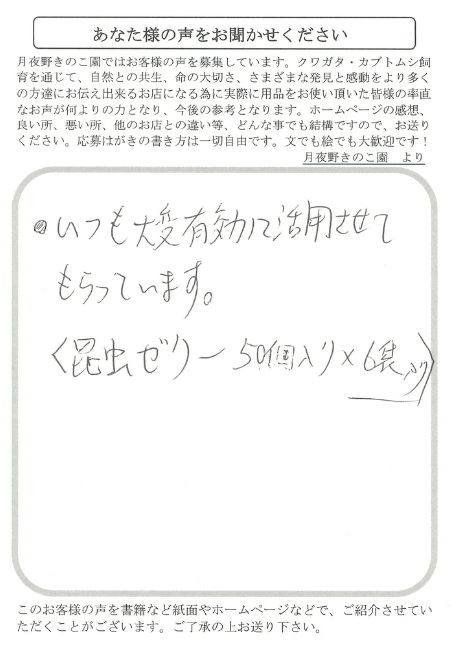 あなた様の声をお聞かせください
月夜野きのこ園ではお客様の声を募集しています。クワガタ・カブトムシ飼
育を通じて、自然との共生、命の大切さ、さまざまな発見と感動をより多く
の方達にお伝え出来るお店になる為に実際に用品をお使い頂いた皆様の率直
なお声が何よりの力となり、今後の参考となります。ホームページの感想、
良い所、悪い所、他のお店との違い等、どんな事でも結構ですので、お送り
ください。応募はがきの書き方は一切自由です。文でも絵でも大歓迎です！
月夜野きのこ園　より
●いつも大変有効に活用させて
もらっています。
〈昆虫ゼリー50個入り×6袋入り〉
このお客様の声を書籍など紙面やホームページなどで、ご紹介させてい
ただくことがございます。ご了承の上お送り下さい。